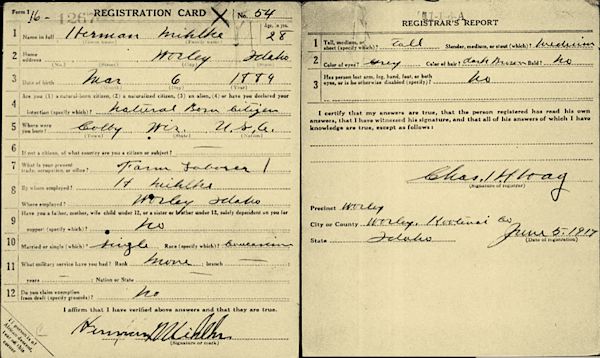 Form 1 REGISTRATION CARD No. 54
16- 1267
Age, in yrs.
1 Name in full Herman Mihlke 28
(Given name) (Family name)
2 Home address Worley Idaho
(No.) (Street) (City) (State)
3 Date of birth Mar 6 1889
(Month) (Day) (Year)
4 Are you (1) a natural-born citizen, (2) a naturalized citizen, (3) an alien, (4) or have you declared your
intention (specify which)? Natural Born Citizen
5 Where were you born? Colby Wis. U.S.A.
(Town) (State) (Nation)
6 If not a citizen, of what country are you a citizen or subject?
7 What is your present trade, occupation, or office? Farm Laborer 1
8 By whom employed? H Mihlke
Where employed? Worley Idaho
9 Have you a father, mother, wife, child under 12, or a sister or brother under 12, solely dependent on you for
support (specify which)? No
10 Married or single (which)? Single Race (specify which)? Caucasian
11 What military service have you had? Rank None ; branch
years Nation or State
12 Do you claim exemption from draft (specify grounds)? No
I affirm that I have verified above answers and that they are true.
Herman Mihlke
(Signature or mark)
If person is of African descent, tear off this corner
REGISTRAR'S REPORT
1 Tall, medium, or short (specify which)? Tall Slender, medium, or stout (which)? Medium
2 Color of eyes? Grey Color of hair? dark Brown Bald? No
3 Has person lost arm, leg, hand, foot, or both eyes, or is he otherwise disabled (specify)? No
I certify that my answers are true, that the person registered has read his own
answers, that I have witnessed his signature, and that all of his answers of which I have
knowledge are true, except as follows:
Chas. H Hoag
(Signature of registrar)
Precinct Worley
City or County Worley, Kootenai Co
State Idaho June 5, 1917
(Date of registration)